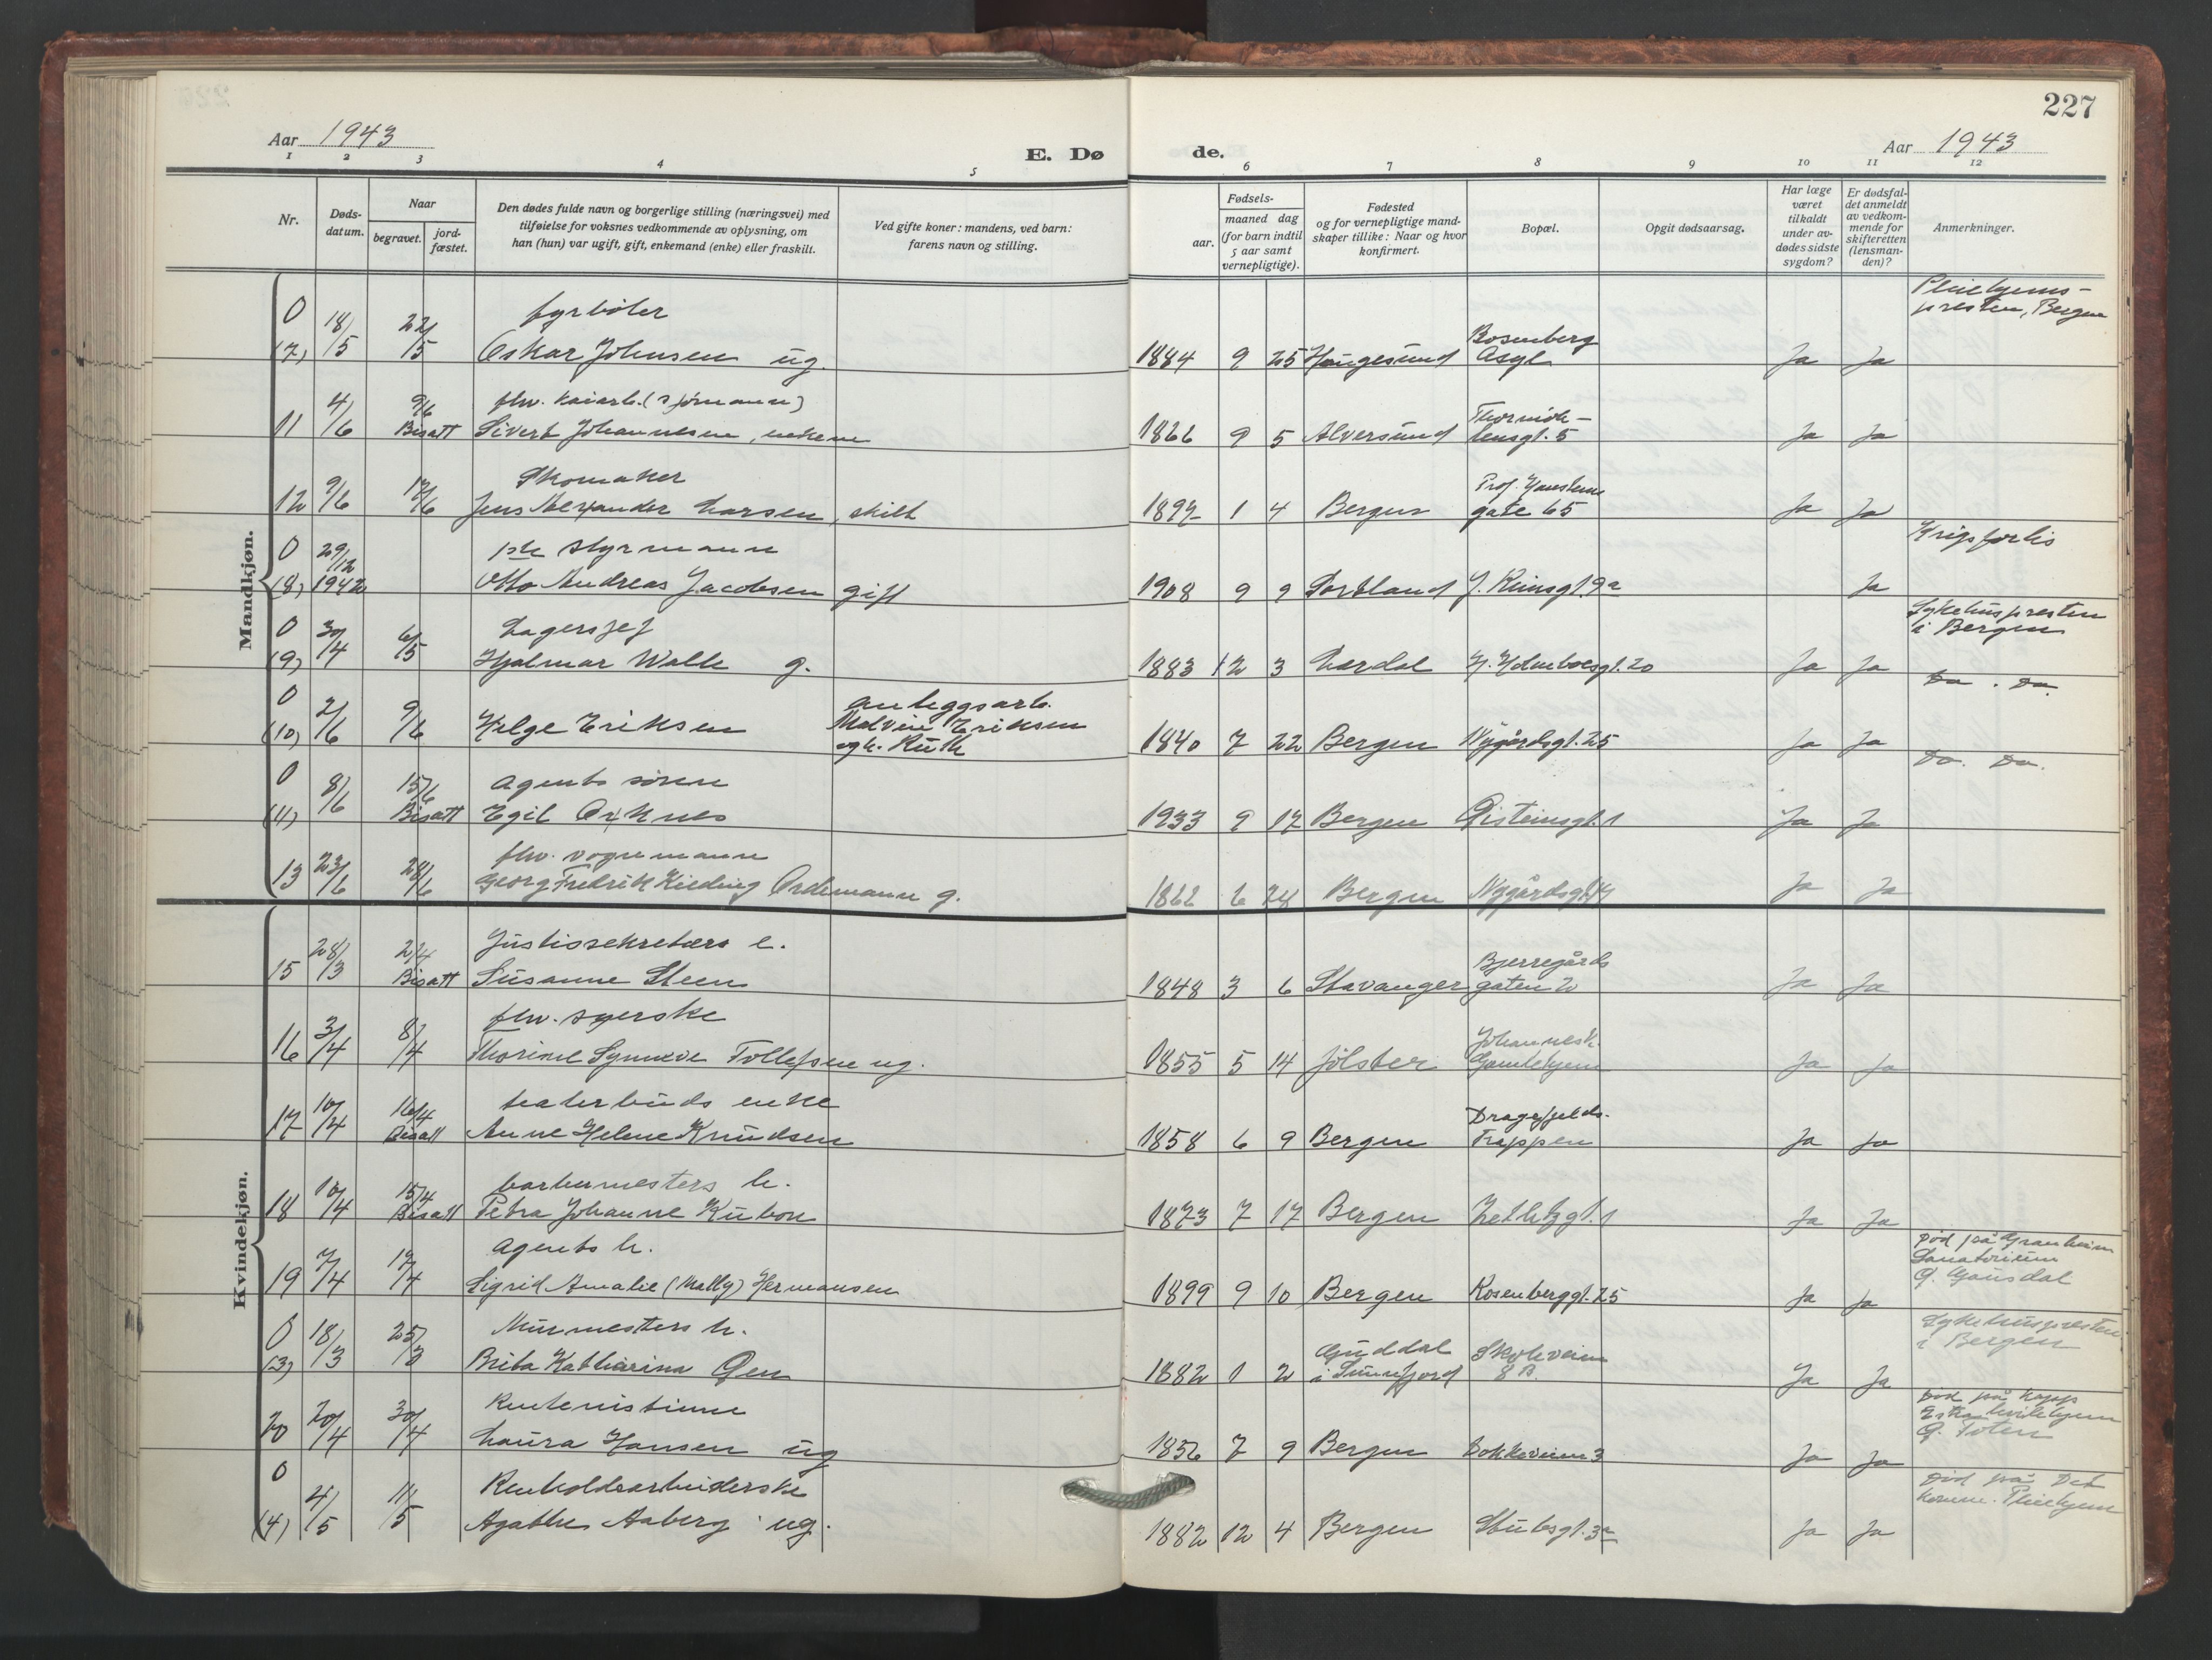 227
Aar 1943
E. Dø
de.
Aar 1943
1 2 3 4 5 6 7 8 9 10 11 12
Nr.
Døds-
datum.
Naar
begravet.
jord-
fæstet.
Den dødes fulde navn og borgerlige stilling (næringsvei) med
tilføielse for voksnes vedkommende av oplysning, om
han (hun) var ugift, gift, enkemand (enke) eller fraskilt.
Ved gifte koner: mandens, ved barn:
farens navn og stilling.
Fødsels-
aar.
maaned dag
(for barn indtil
5 aar samt
vernepligtige).
Fødested
og for vernepligtige mand-
skaper tillike: Naar og hvor
konfirmert.
Bopæl.
Opgit dødsaarsag.
Har læge
været
tilkaldt
under av-
dødes sidste
sygdom?
Er dødsfal-
det anmeldt
av vedkom-
mende for
skifteretten
(lensman-
den)?
Anmerkninger.
Mandkjøn.
fyrbøter
Pleiehjems-
presten, Bergen
0 (7) 18/5 22/5 Oskar Johnsen ug. 1884 9 25 Haugesund Rosenberg
Asyl Ja Ja
fhv. kaiarb. (sjømann)
11 4/6 9/6 Bisatt Sivert Johannesen, enkem 1866 9 5 Alversund Thormøh-
lensgt. 5 Ja Ja
Skomaker
12 9/6 17/6 Jens Alexander Larsen, skilt 1892 1 4 Bergen Prof. Hansteens
gate 65 Ja Ja
1ste styrmann
Krigsforlis
0 (8) 29/12 1942 Otto Andreas Jacobsen gift 1908 9 9 Portland J. Reinsgt. 9a Ja
Lagersjef
Sykehuspresten
i Bergen
0 (9) 30/4 6/5 Hjalmar Walle g. 1883 12 3 Lærdal H. Holmboesgt. 20 Ja Ja
anleggsarb.
Do. Do.
0 (10) 2/6 9/6 Helge Eriksen Malvin Eriksen
ogh. Ruth 1940 7 22 Bergen Nygårdsgt. 25 Ja Ja
agents sønn
Do. Do.
0 (11) 8/6 15/6 Bisatt Egil Orknes 1933 9 17 Bergen Øisteinsgt. 1 Ja Ja
fhv. vognmann
13 23/6 28/6 Georg Fredrik Kieding Ordemann g. 1862 6 24 Bergen Nygårdsgt. Ja Ja
Kvindekjøn.
Justissekretærs e.
15 28/3 2/4 Bisatt Susanne Steen 1848 3 6 Stavanger Bjerregårds
gaten 20 Ja Ja
fhv. syerske
16 3/4 8/4 Thorine Synneve Tollefsen ug. 1855 5 14 Jølster Johannesk.
Gamlehjem Ja Ja
teaterbuds enke
17 10/4 16/4 Bisatt Anne Helene Knudsen 1858 6 9 Bergen Dragefjelds-
Trappen Ja Ja
barbermesters h.
18 10/4 15/4 Bisatt Petra Johanne Kubon 1873 7 17 Bergen Zetlitzgt. 1 Ja Ja
agents h.
Død på Granheim
Sanatorium
Ø. Gausdal
19 7/4 17/4 Sigrid Amalie (Mally) Hermansen 1899 9 10 Bergen Rosenberggt. 25 Ja Ja
Murmesters h.
Sykehuspresten
i Bergen
0 (3) 18/3 25/3 Brita Katharina Øen 1882 1 2 Guddal
i Sunnfjord Skoleveien
8 B. Ja Ja
Rentenistinne
Død på Kapp
hvilehjem
Ø. Toten
20 20/4 30/4 Laura Hansen ug 1856 7 9 Bergen Dokkeveien 3 Ja Ja
Renholdsarbeiderske
Død på Det
komm. Pleiehjem
0 (4) 4/5 11/5 Agathe Aaberg ug. 1882 12 4 Bergen Stubsgt. 3a Ja Ja